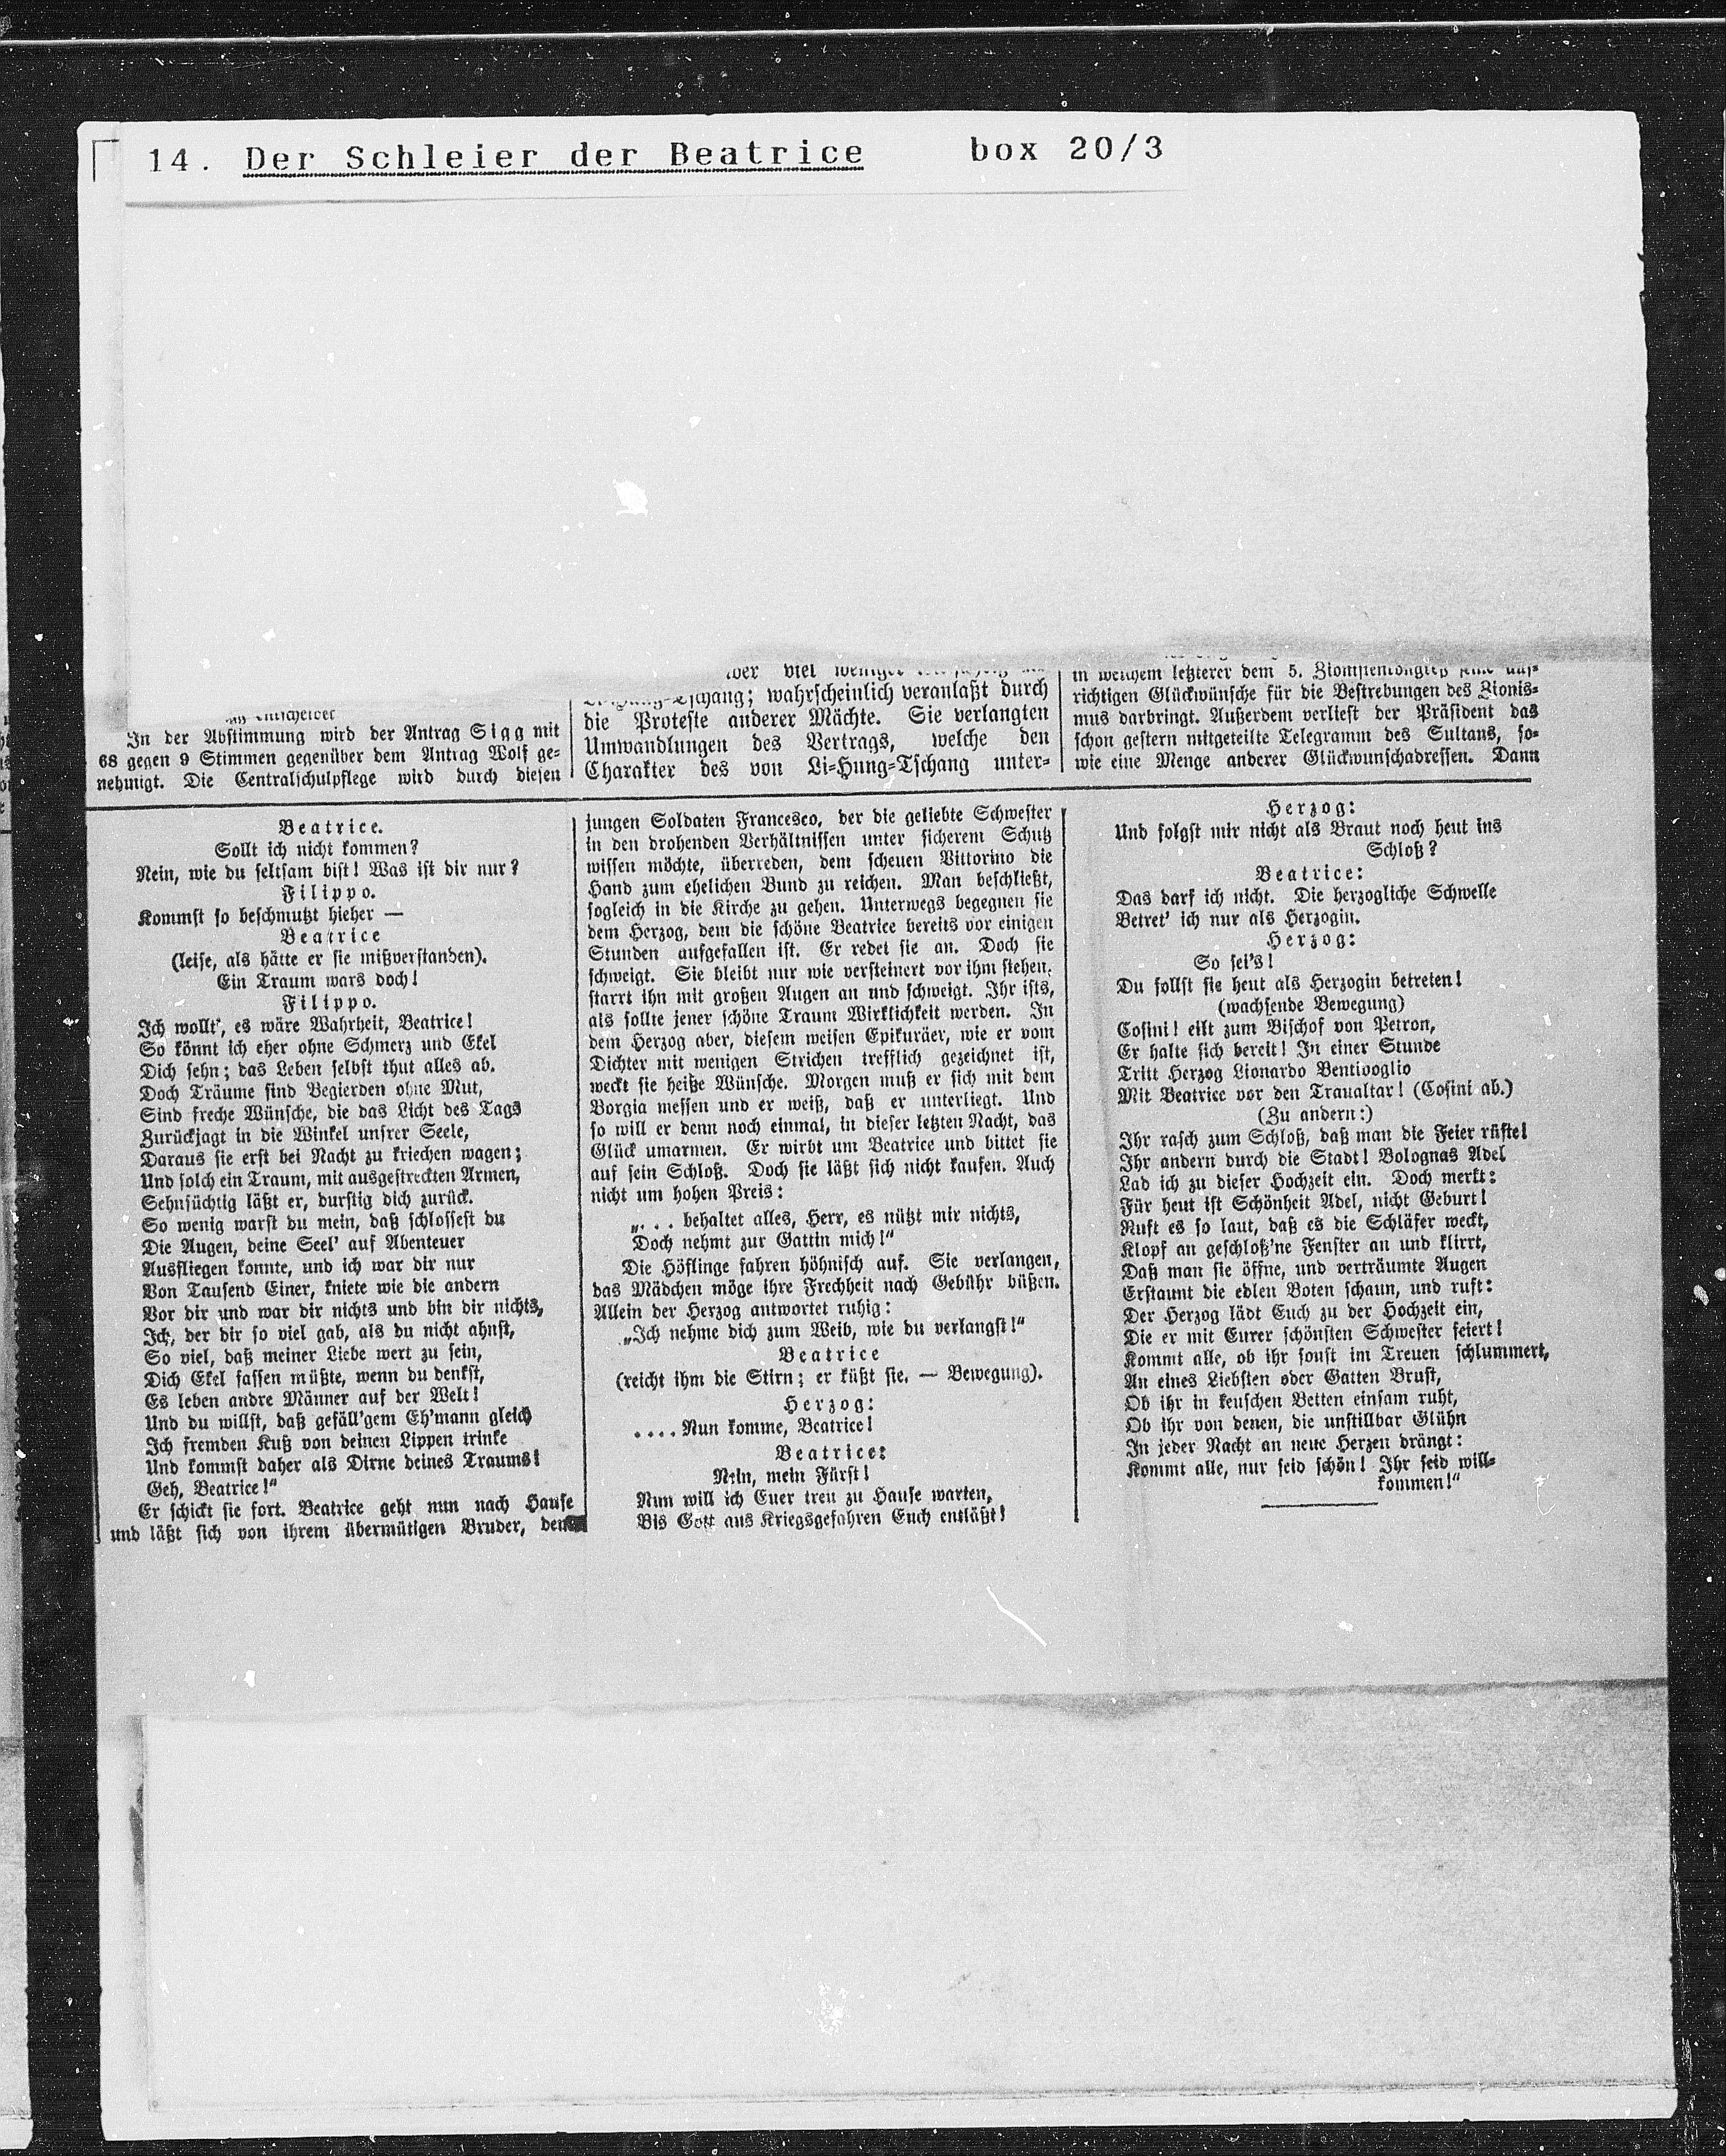 14. Der Schleier der Beatrice box 20/3
In der Abstimmung wird der Antrag Sigg mit
68 gegen 9 Stimmen gegenüber dem Antrag Wolf ge-
nehmigt. Die Centralschulpflege wird durch diesen
viel weniger
wahrscheinlich veranlaßt durch
die Proteste anderer Mächte. Sie verlangten
Umwandlungen des Vertrags, welche den
Charakter des von Li-Hung-Tschang unter-
in welchem letzterer dem 5.
richtigen Glückwünsche für die Bestrebungen des Zionis-
mus darbringt. Außerdem verliest der Präsident das
schon gestern mitgeteilte Telegramm des Sultans, so-
wie eine Menge anderer Glückwunschadressen. Dann
Beatrice.
Sollt ich nicht kommen?
Nein, wie du seltsam bist! Was ist dir nur?
Filippo.
Kommst so beschmutzt hieher —
Beatrice
(leise, als hätte er sie mißverstanden).
Ein Traum wars doch!
Filippo.
Ich wollt', es wäre Wahrheit, Beatrice!
So könnt ich eher ohne Schmerz und Ekel
Dich sehn; das Leben selbst thut alles ab.
Doch Träume sind Begierden ohne Mut,
Sind freche Wünsche, die das Licht des Tags
Zurückjagt in die Winkel unsrer Seele,
Daraus sie erst bei Nacht zu kriechen wagen;
Und solch ein Traum, mit ausgestreckten Armen,
Sehnsüchtig läßt er, durstig dich zurück.
So wenig warst du mein, daß schlossest du
Die Augen, deine Seel' auf Abenteuer
Ausfliegen konnte, und ich war dir nur
Von Tausend Einer, kniete wie die andern
Vor dir und war dir nichts und bin dir nichts,
Ich, der dir so viel gab, als du nicht ahnst,
So viel, daß meiner Liebe wert zu sein,
Dich Ekel fassen müßte, wenn du denkst,
Es leben andre Männer auf der Welt!
Und du willst, daß gefäll'gem Eh'mann gleich
Ich fremden Kuß von deinen Lippen trinke
Und kommst daher als Dirne deines Traums!
Geh, Beatrice!"
Er schickt sie fort. Beatrice geht nun nach Hause
und läßt sich von ihrem übermütigen Bruder, dem
jungen Soldaten Francesco, der die geliebte Schwester
in den drohenden Verhältnissen unter sicherem Schutz
wissen möchte, überreden, dem scheuen Vittorino die
Hand zum ehelichen Bund zu reichen. Man beschließt,
sogleich in die Kirche zu gehen. Unterwegs begegnen sie
dem Herzog, dem die schöne Beatrice bereits vor einigen
Stunden aufgefallen ist. Er redet sie an. Doch sie
schweigt. Sie bleibt nur wie versteinert vor ihm stehen,
starrt ihn mit großen Augen an und schweigt. Ihr ists,
als sollte jener schöne Traum Wirklichkeit werden. In
dem Herzog aber, diesem weisen Epikuräer, wie er vom
Dichter mit wenigen Strichen trefflich gezeichnet ist,
weckt sie heiße Wünsche. Morgen muß er sich mit dem
Borgia messen und er weiß, daß er unterliegt. Und
so will er denn noch einmal, in dieser letzten Nacht, das
Glück umarmen. Er wirbt um Beatrice und bittet sie
auf sein Schloß. Doch sie läßt sich nicht kaufen. Auch
nicht um hohen Preis:
„. . . behaltet alles, Herr, es nützt mir nichts,
Doch nehmt zur Gattin mich!"
Die Höflinge fahren höhnisch auf. Sie verlangen,
das Mädchen möge ihre Frechheit nach Gebühr büßen.
Allein der Herzog antwortet ruhig:
„Ich nehme dich zum Weib, wie du verlangst!"
Beatrice
(reicht ihm die Stirn; er küßt sie. — Bewegung).
Herzog:
. . . . Nun komme, Beatrice!
Beatrice:
Nein, mein Fürst!
Nun will ich Euer treu zu Hause warten,
Bis Gott aus Kriegsgefahren Euch entläßt!
Herzog:
Und folgst mir nicht als Braut noch heut ins
Schloß?
Beatrice:
Das darf ich nicht. Die herzogliche Schwelle
Betret' ich nur als Herzogin.
Herzog:
So sei's!
Du sollst sie heut als Herzogin betreten!
(wachsende Bewegung)
Cosini! eilt zum Bischof von Petron,
Er halte sich bereit! In einer Stunde
Tritt Herzog Lionardo Bentivoglio
Mit Beatrice vor den Traualtar! (Cosini ab.)
(Zu andern:)
Ihr rasch zum Schloß, daß man die Feier rüste!
Ihr andern durch die Stadt! Bolognas Adel
Lad ich zu dieser Hochzeit ein. Doch merkt:
Für heut ist Schönheit Adel, nicht Geburt!
Ruft es so laut, daß es die Schläfer weckt,
Klopf an geschloß'ne Fenster an und klirrt,
Daß man sie öffne, und verträumte Augen
Erstaunt die edlen Boten schaun, und ruft:
Der Herzog lädt Euch zu der Hochzeit ein,
Die er mit Eurer schönsten Schwester feiert!
Kommt alle, ob ihr sonst im Treuen schlummert,
An eines Liebsten oder Gatten Brust,
Ob ihr in keuschen Betten einsam ruht,
Ob ihr von denen, die unstillbar Glühn
In jeder Nacht an neue Herzen drängt:
Kommt alle, nur seid schön! Ihr seid will-
kommen!"